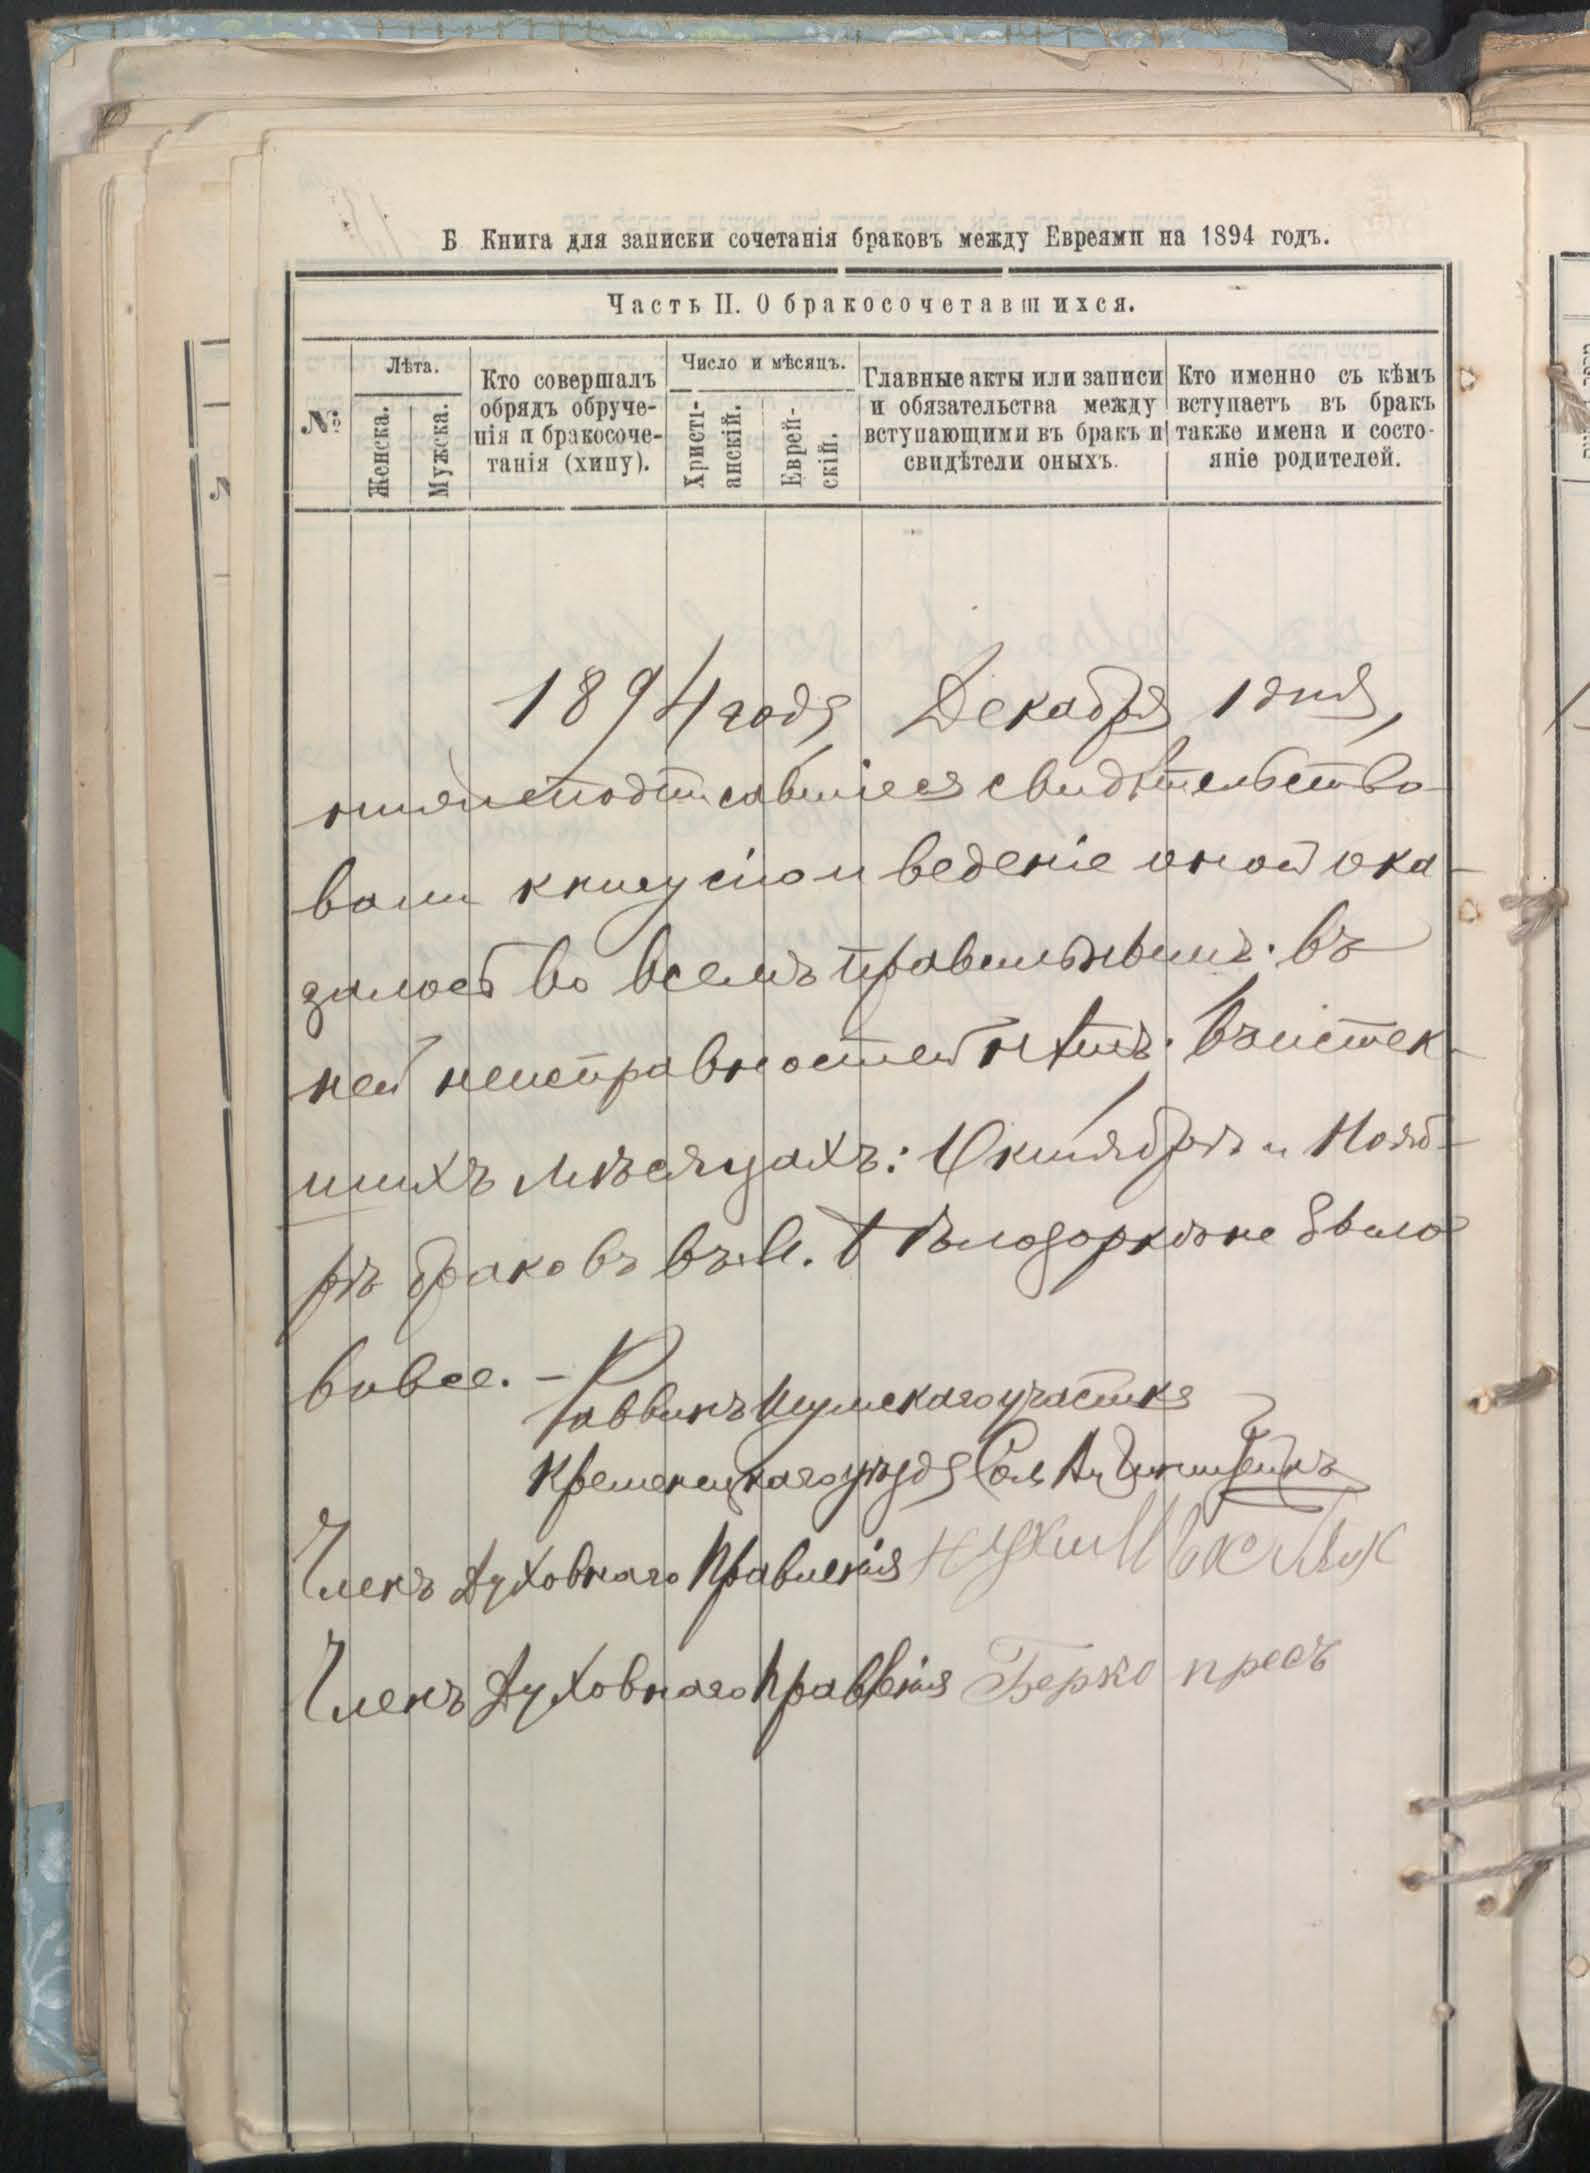 Б Книга для записки сочетанія браковъ между Евреями на 1894 годъ.
Часть II. О бракосочетавшихся.
№
Лѣта.
Женска.
Мужска.
Кто совершалъ
обрядъ обруче-
нія и бракосоче-
танія (хипу).
Число и мѣсяцъ.
Христі-
анскій.
Еврей-
скій.
Главные акты или записи
и обязательства между
вступающими въ бракъ и
свидѣтели оныхъ.
Кто именно съ кѣмъ
вступаетъ въ бракъ
также имена и состо-
яніе родителей.
1894 года Декабря 1 дня,
нижеподписавшіеся свидѣтельство-
вали книгу сію и веденіе оной ока-
залось во всемъ правильнымъ: въ
ней неисправностей нѣтъ. Въ истек-
шихъ мѣсяцахъ: Октябрѣ и Нояб-
рѣ браковъ въ М. Бѣлозоркѣ не было
вовсе. –
Раввинъ Шумскаго участка
Кременецкаго уѣзда
Членъ Духовнаго Правленія
Членъ Духовнаго Правленія Берко пресъ